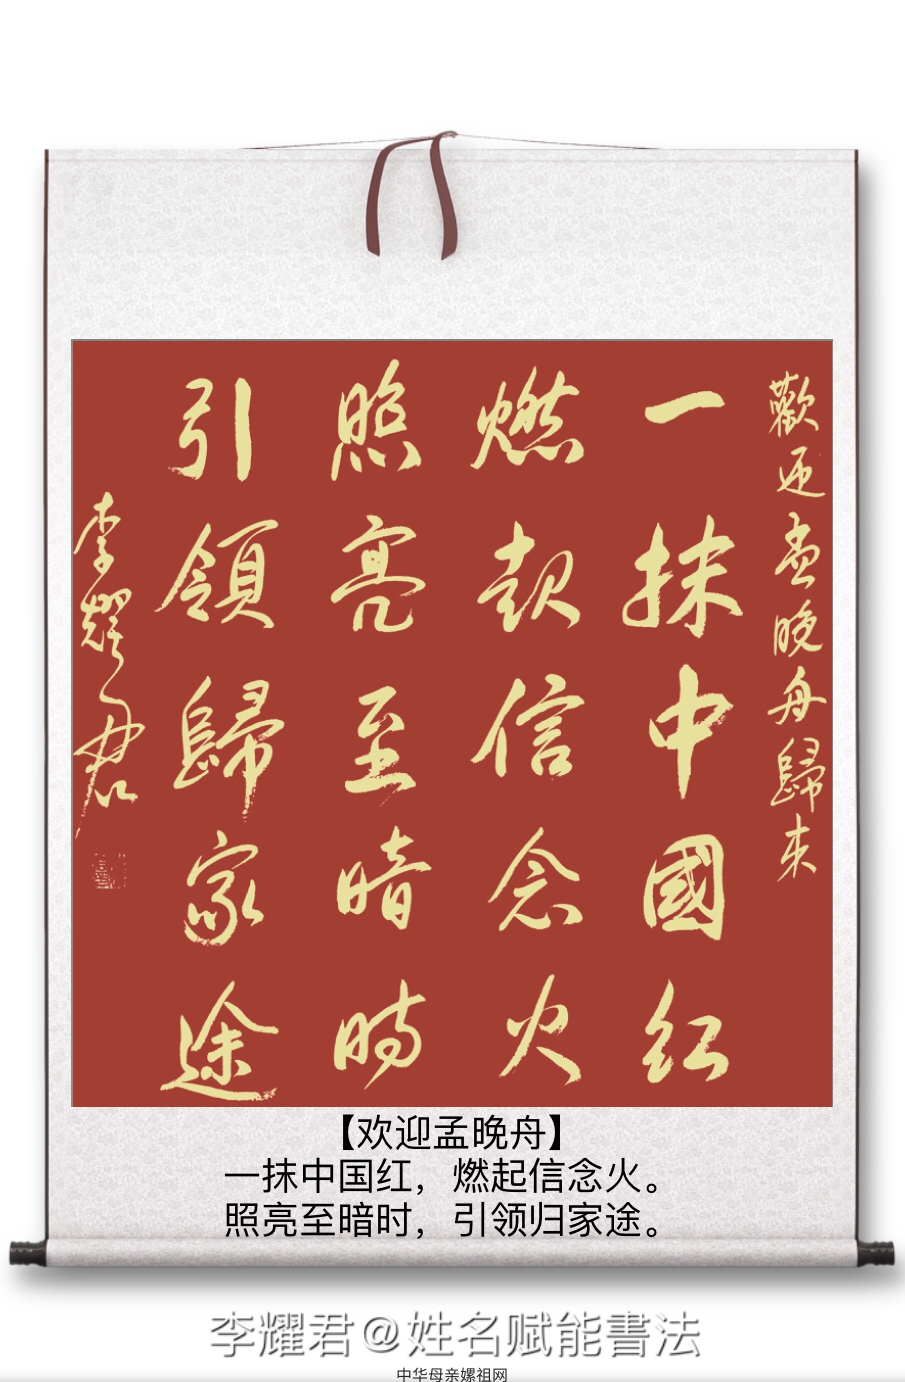 歡迎孟晚舟歸来
一抹中國红
燃起信念火
照亮至暗時
引領歸家途
李耀君
【欢迎孟晚舟】
一抹中国红，燃起信念火。
照亮至暗时，引领归家途。
李耀君@姓名赋能書法
中华母亲嫘祖网